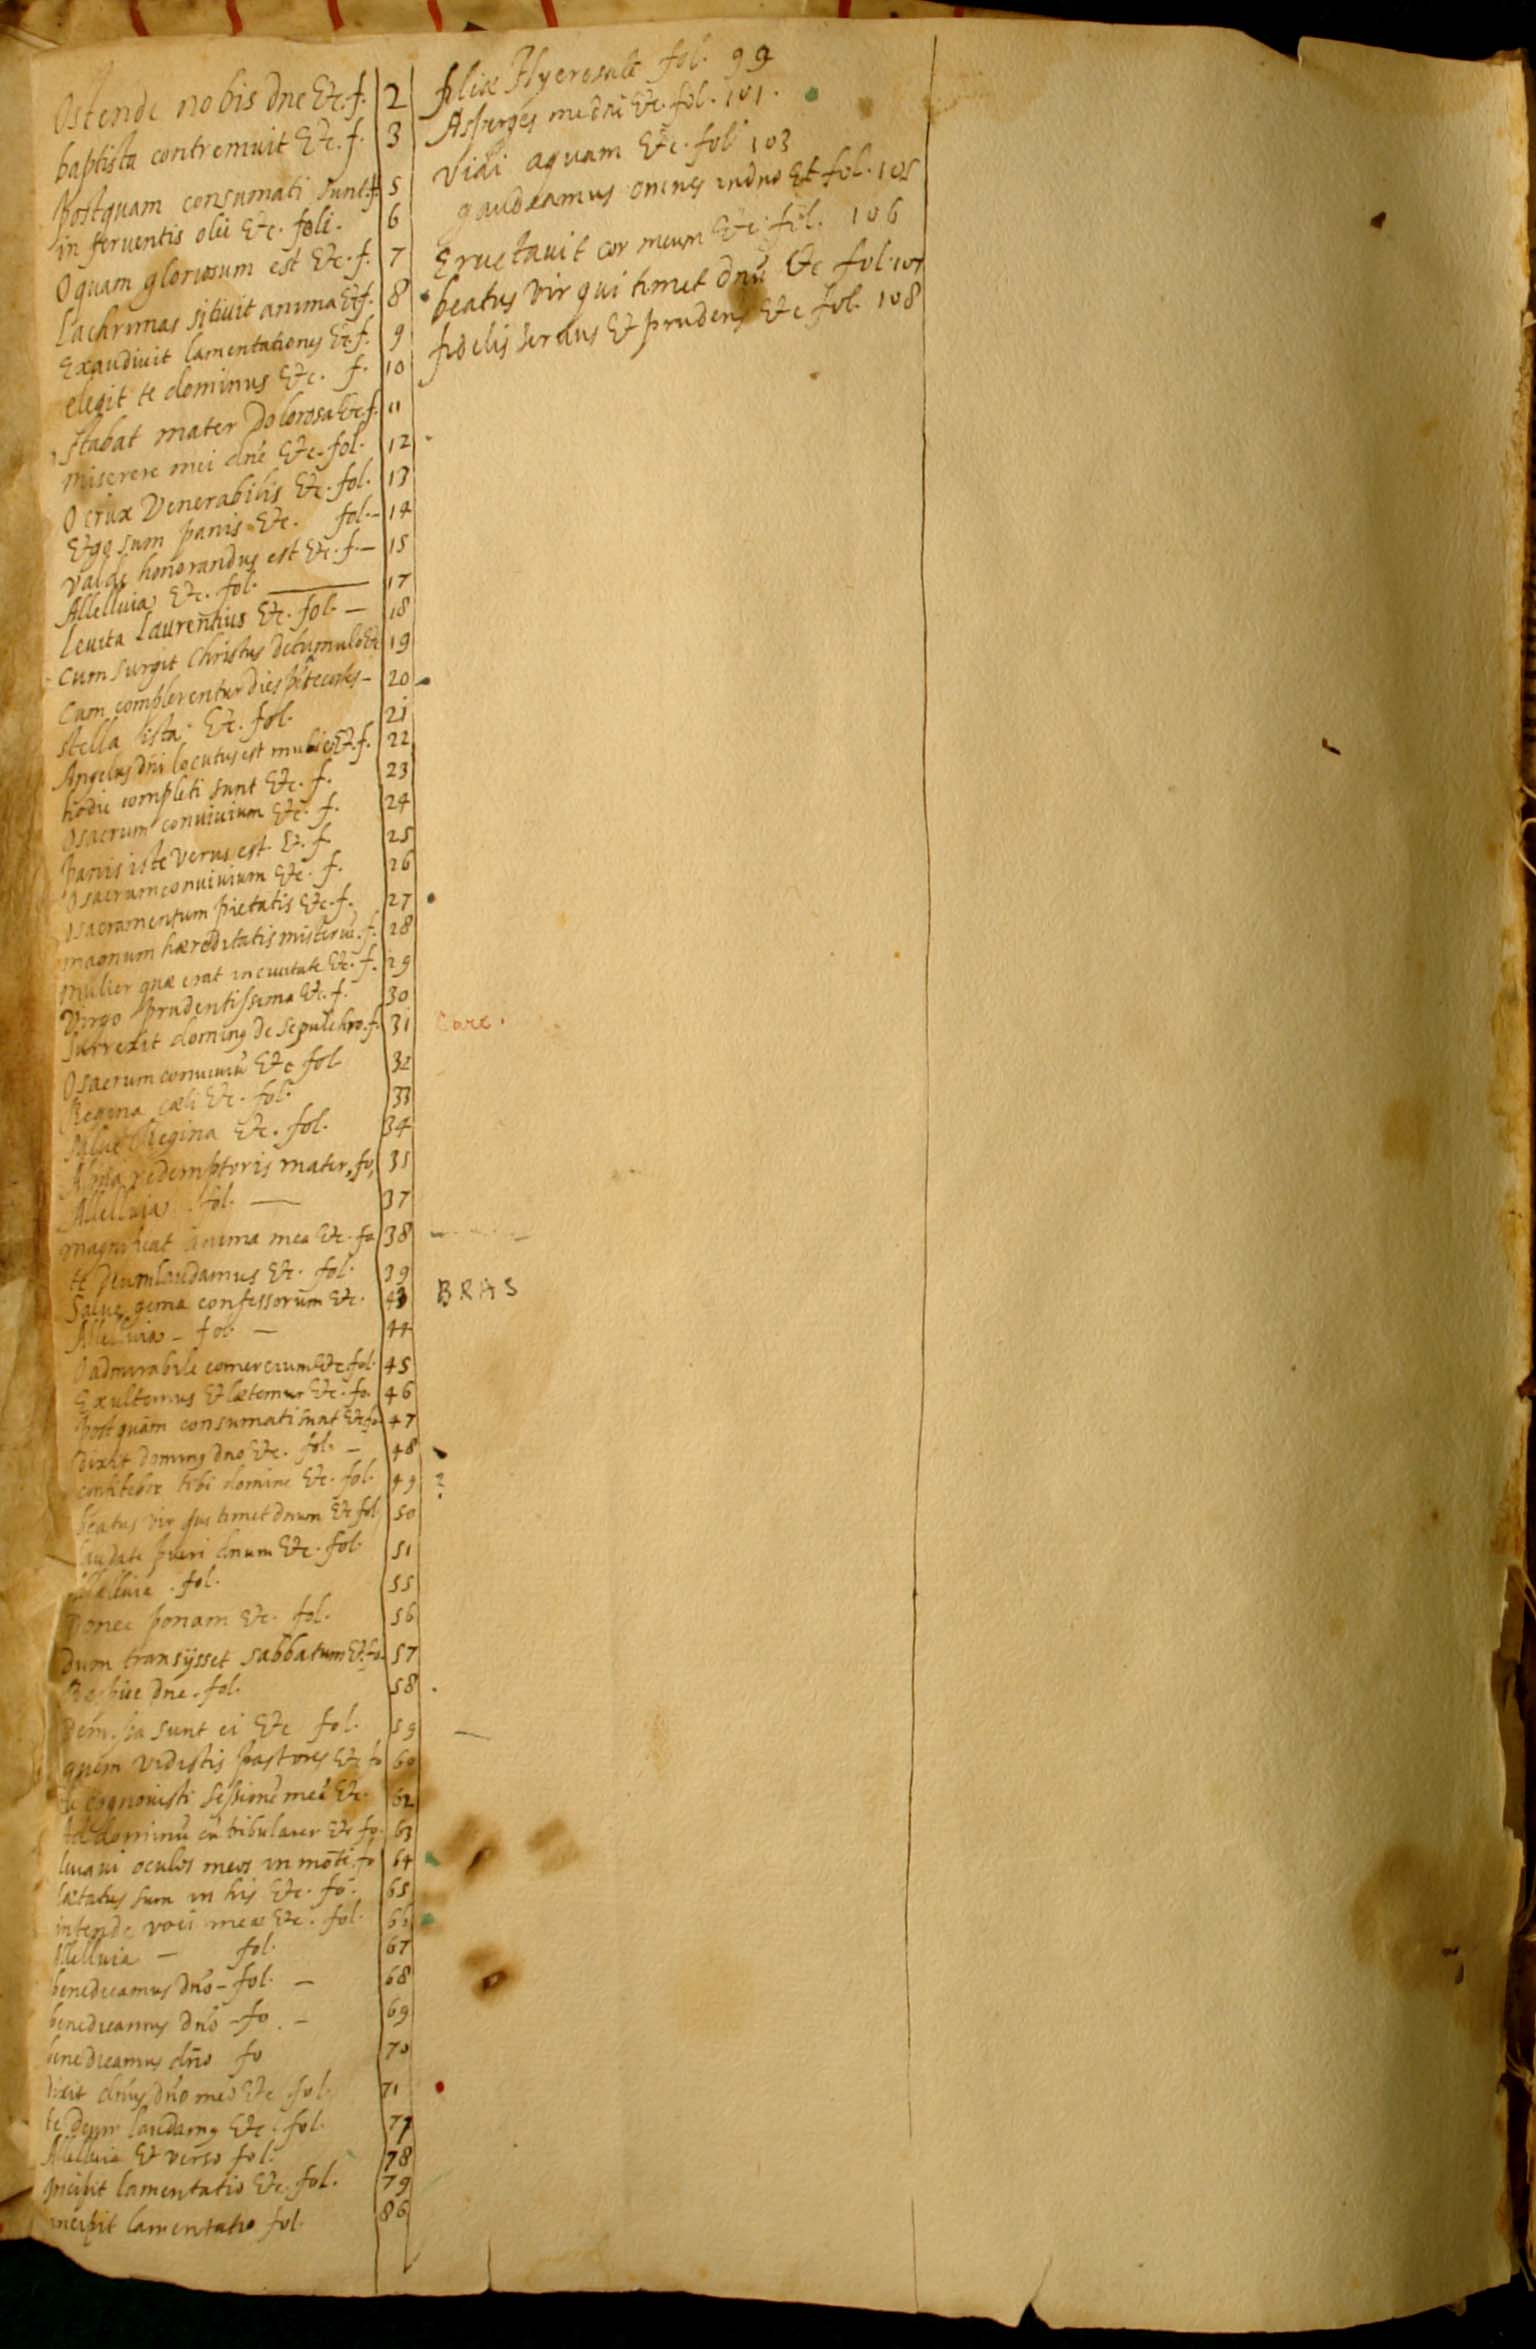 Ostende nobis dne &c. f. 2
baptista contremuit &c. f. 3
postquam consumati sunt. f. 5
in feruentis olii &c. foli. 6
O quam gloriosum est &c. f. 7
Lachrimas sitiuit anima &c f. 8
Exaudiuit lamentationes &c f. 9
elegit te dominus &c. f. 10
Stabat mater Dolorosa &c f. 11
miserere mei dne &c. fol. 12
O crux Venerabilis &c. fol. 13
Ego sum panis &c. fol. - 14
Valde honorandus est &c. f. - 15
Allelluia &c. fol. 17
leuita Laurentius &c. fol. - 18
Cum surgit Christus de tumulo &c 19
Cum complerentur dies pētecostes - 20
stella ista &c. fol. 21
Angelus dni locutus est mulie &c. f. 22
hodie completi sunt &c. f. 23
O sacrum conuiuium &c. f. 24
panis iste verus est &. f. 25
O sacrum conuiuium &c. f. 26
O sacramentum pietatis &c. f. 27
magnum hæreditatis misteriū. f. 28
mulier quæ erat in ciuitate &c. f. 29
Virgo prudentissima &c. f. 30
Surrexit doming de sepulchro. f. 31
O sacrum conuiuiū &c fol 32
Regina cæli &c. fol. 33
Salue Regina &c. fol. 34
Alma redemptoris mater, fo, 35
Allelluia fol. - 37
magnificat anima mea &c. fo 38
te Deum laudamus &c. fol. 39
Salue gema confessorum &c. 43
Allelluia - fol. - 44
O admirabile comercium &c fol. 45
Exultemus & lætemur &c. fo. 46
postquam consumati sunt &c fo 47
dixit doming dno &c. fol. - 48
confitebor tibi domine &c. fol. 49
beatus vir qui timet dnum &c fol 50
laudate pueri dnum &c. fol. 51
Allelluia . fol. 55
Donec ponam &c. fol. 56
dum transijsset sabbatum &c fo. 57
Respice dne. fol. 58
sunt ei &c fol. 59
quem vidistis pastores &c fo 60
tu cognouisti sessionē meā &c. 62
Ad dominū cū tribularer &c fo. 63
leuaui oculos meos in mōtē. fo 64
lætatus sum in his &c. fo. 65
intende voci meæ &c. fol. 66
Allelluia - fol. 67
benedicamus dno - fol. - 68
benedicamus dno - fo. - 69
benedicamus dno fo 70
dixit dnus dno meo &c fol. 71
te Deum laudamg &c. fol. 77
Allelluia & verso fol. 78
incipit lamentatio &c. fol. 79
incipit lamentatio fol. 86
filiæ Hyerosale fol. 99
Asperges me dne &c. fol. 101.
Vidi aquam &c. fol 103
gaudeamus omnes in dno & fol. 105
Eructauit cor meum &c. fol. 106
beatus vir qui timet dnū &c fol. 107
fidelis seruus & prudens &c fol. 108
Care.
BRAS
2